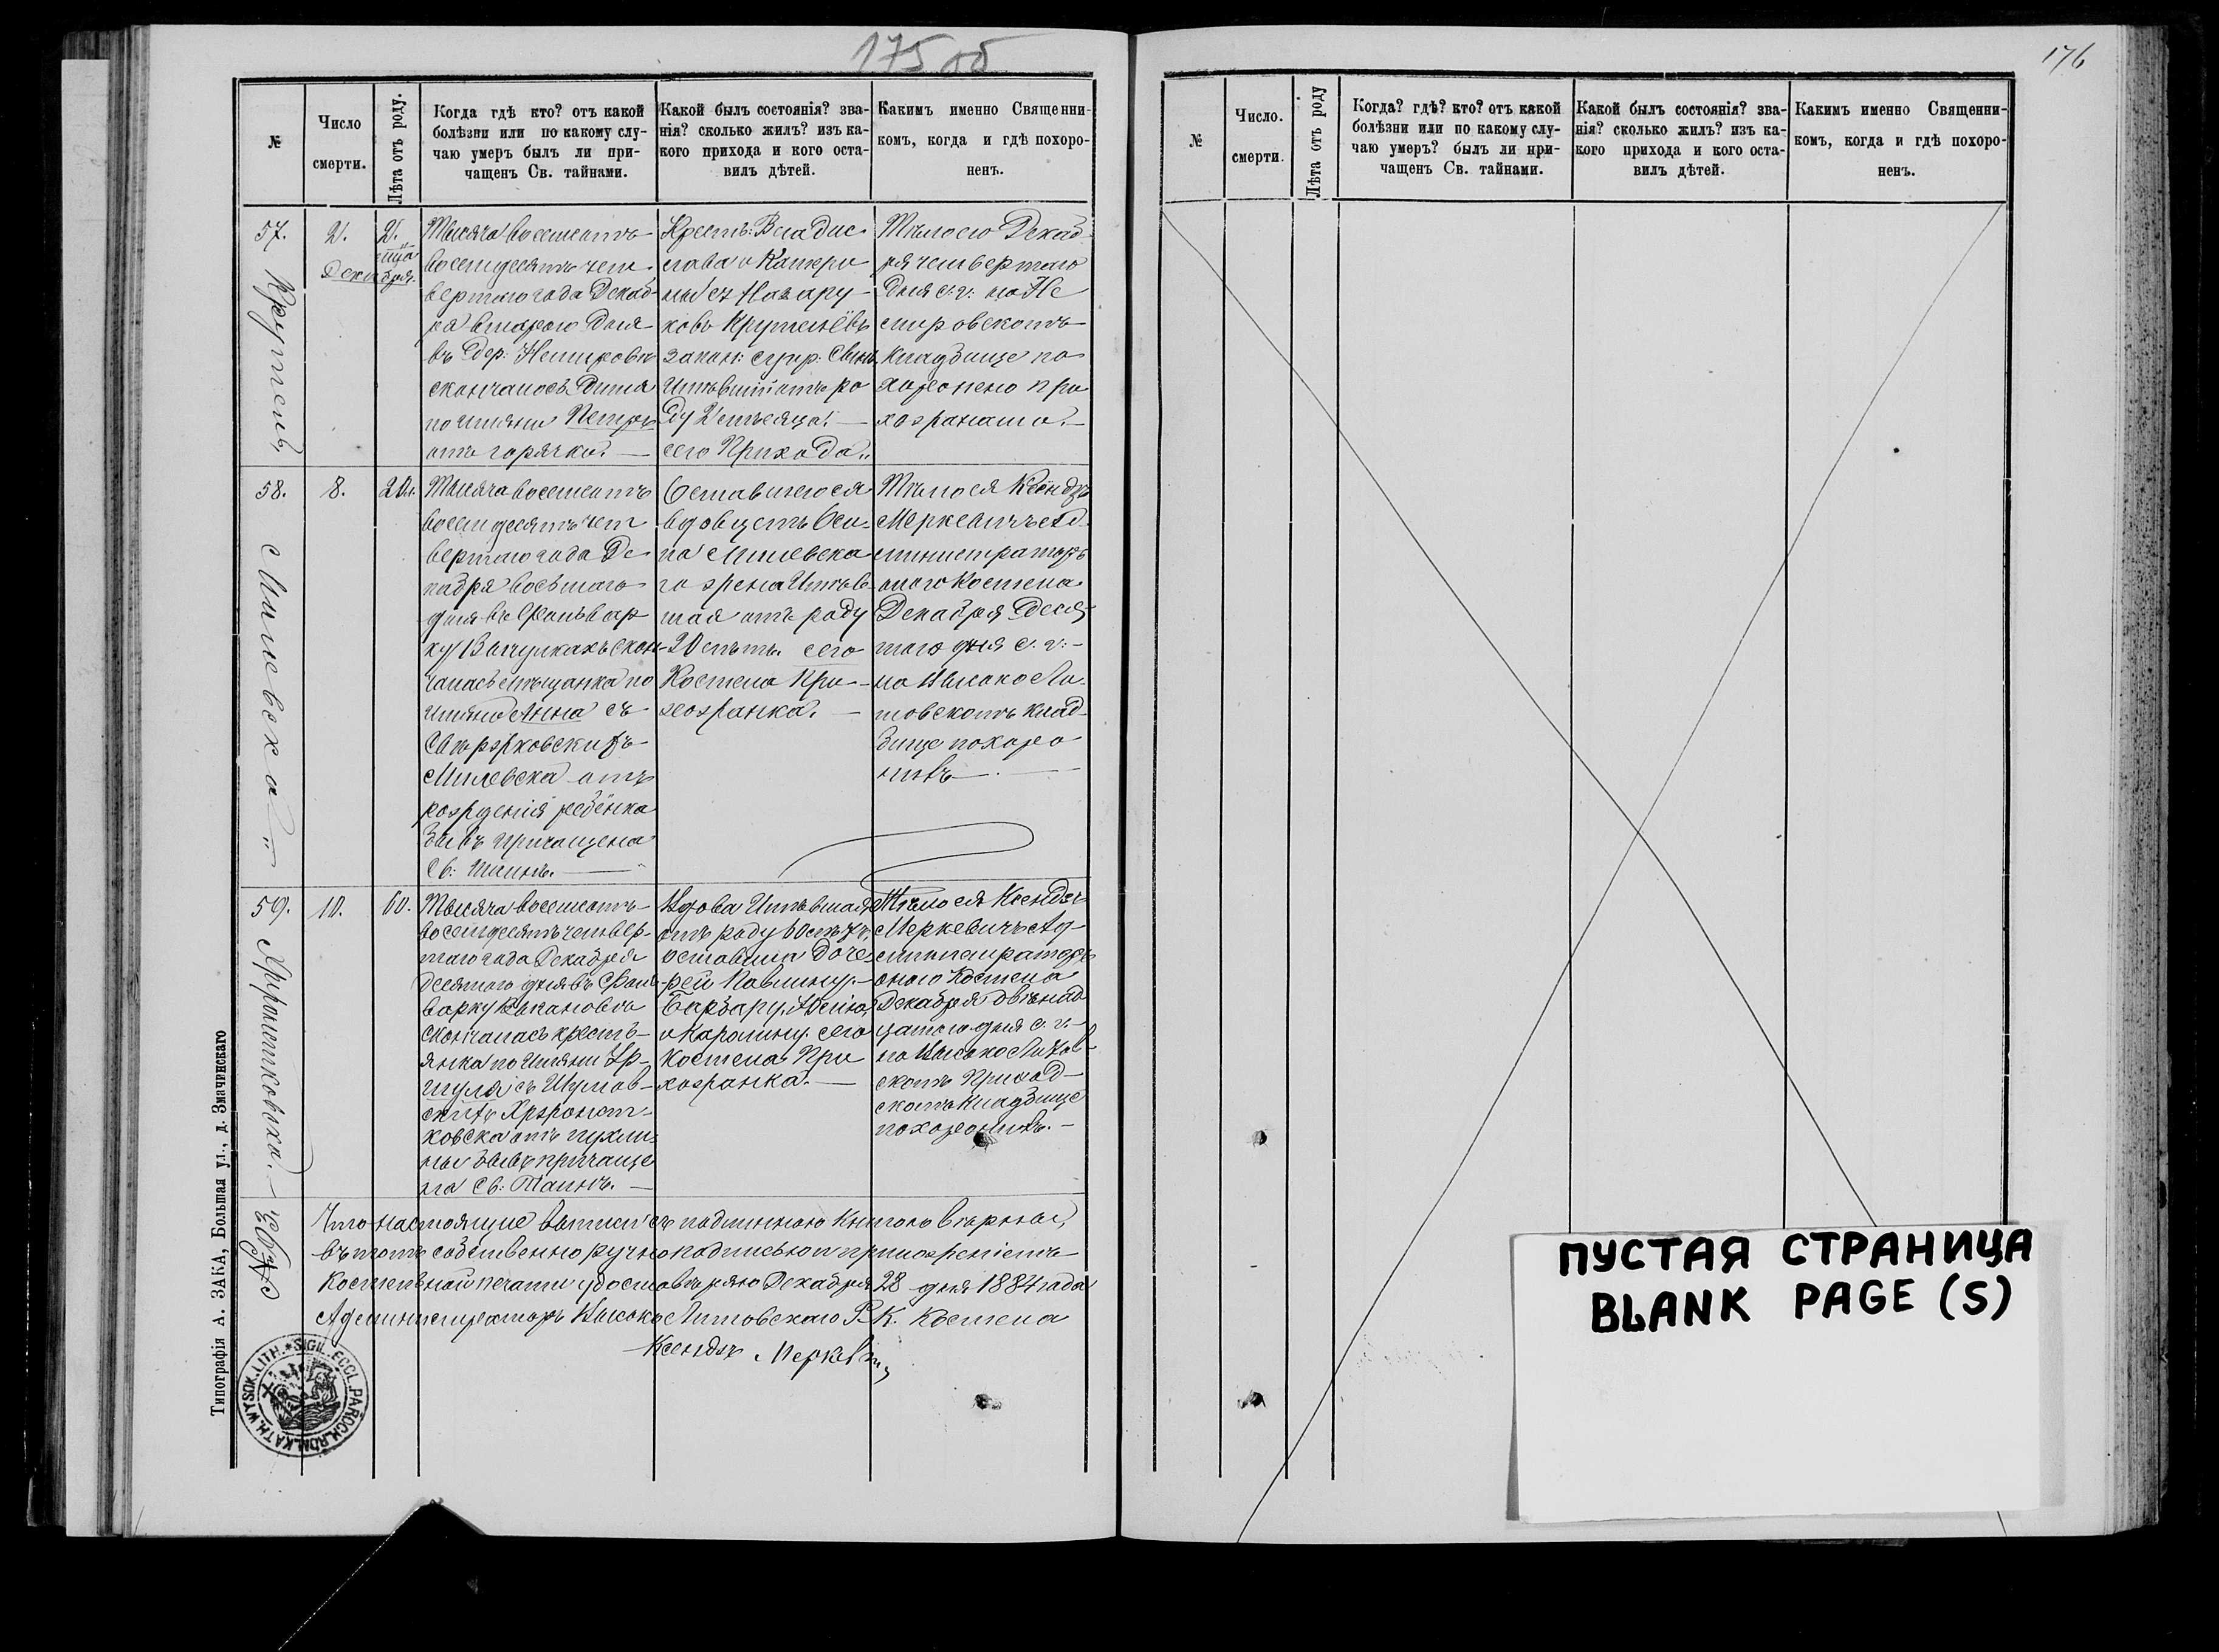 175 об
176
№
Число
смерти.
Лѣта отъ роду.
Когда гдѣ кто? отъ какой
болѣзни или по какому слу-
чаю умеръ былъ ли при-
чащенъ Св. тайнами.
Какой былъ состоянія? зва-
нія? сколько жилъ? изъ ка-
кого прихода и кого оста-
вилъ дѣтей.
Какимъ именно Священни-
комъ, когда и гдѣ похоро-
ненъ.
57.
2.
Декабря.
2.
Тысяча восемсотъ
восемдесятъ чет
вертаго года Декаб-
ря втораго дня
въ дер: Немировѣ
скончалось Дитя
по имяни Петръ
отъ горячки. —
Крест: Владис
лава и Катери
ны
Крутелёвъ
закон: супр: Сынъ
Имѣвшій отъ ро
ду 2 мѣсяца. —
сего Прихода.
Тѣло его Декаб
ря четвертаго
дня с. г. на Не
мировскомъ
кладбище по
хоронено при
хожанами.
58.
8.
20.
Милевска
Тысяча восемсотъ
восемдесятъ чет
вертаго года Де
кабря восьмаго
дня въ Фольвар
ку скон
чалась мѣщанка по
имяни Анна съ
Милевска отъ
рожденія ребёнка
бывъ причащена
Св: Таинъ. —
Оставшегося
вдовцемъ Оси
па Милевска
го жена Имѣв
шая отъ роду
20 лѣтъ. сего
Костела При
хожанка. —
Тѣло ея Ксендзъ
Меркевичъ Ад
министраторъ
оного Костела
Декабря деся
таго дня с. г. —
на Высоко Ли
товскомъ клад
бище похоро
нивъ —
59.
10.
60.
Тысяча восемсотъ
восемдесятъ четвер-
таго года Декабря
десятаго дня въ Фоль
варку
скончалась кресть-
янка по имяни Ур-
шуля съ
ковска отъ пухли
ны бывъ причаще
на Св: Таинъ. —
Вдова Имѣвшая
отъ роду 60 лѣтъ,
оставила доче
рей Павлину,
Барбару,
и Каролину. сего
Костела При
хожанка. —
Тѣло ея Ксендзъ
Меркевичъ Ад-
министраторъ
оного Костела
Декабря двѣнад
цатого дня с. г. —
на Высоко Литов
скомъ Приход
скомъ кладбище
похоронивъ. —
Что настоящие выписи съ подлинною Книгою вѣрны,
въ томъ собственноручно подписью и приложеніемъ
Костельной печати удостовѣряю Декабря 28 дня 1884 года
Администраторъ Высоко Литовскаго Р. К. Костела
Ксендзъ Меркевичъ
SIGIL. ECCL. PAROCH. ROM. KATH. WYSOK. LITH.
Типографія А. ЗАКА, Большая ул., д. Значинскаго
№
Число.
смерти.
Лѣта отъ роду
Когда? гдѣ? кто? отъ какой
болѣзни или по какому слу-
чаю умеръ? былъ ли при-
чащенъ Св. тайнами.
Какой былъ состоянія? зва-
нія? сколько жилъ? изъ ка-
кого прихода и кого оста-
вилъ дѣтей.
Какимъ именно Священни-
комъ, когда и гдѣ похоро-
ненъ.
ПУСТАЯ СТРАНИЦА
BLANK PAGE (S)